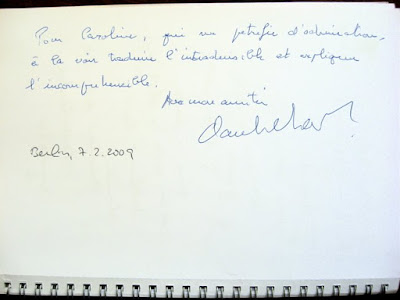 Pour Caroline, qui me pétrifie d'admiration,
à la voir traduire l'intraduisible et expliquer
l'incompréhensible.
Avec mon amitié
Berlin, 7.2.2009